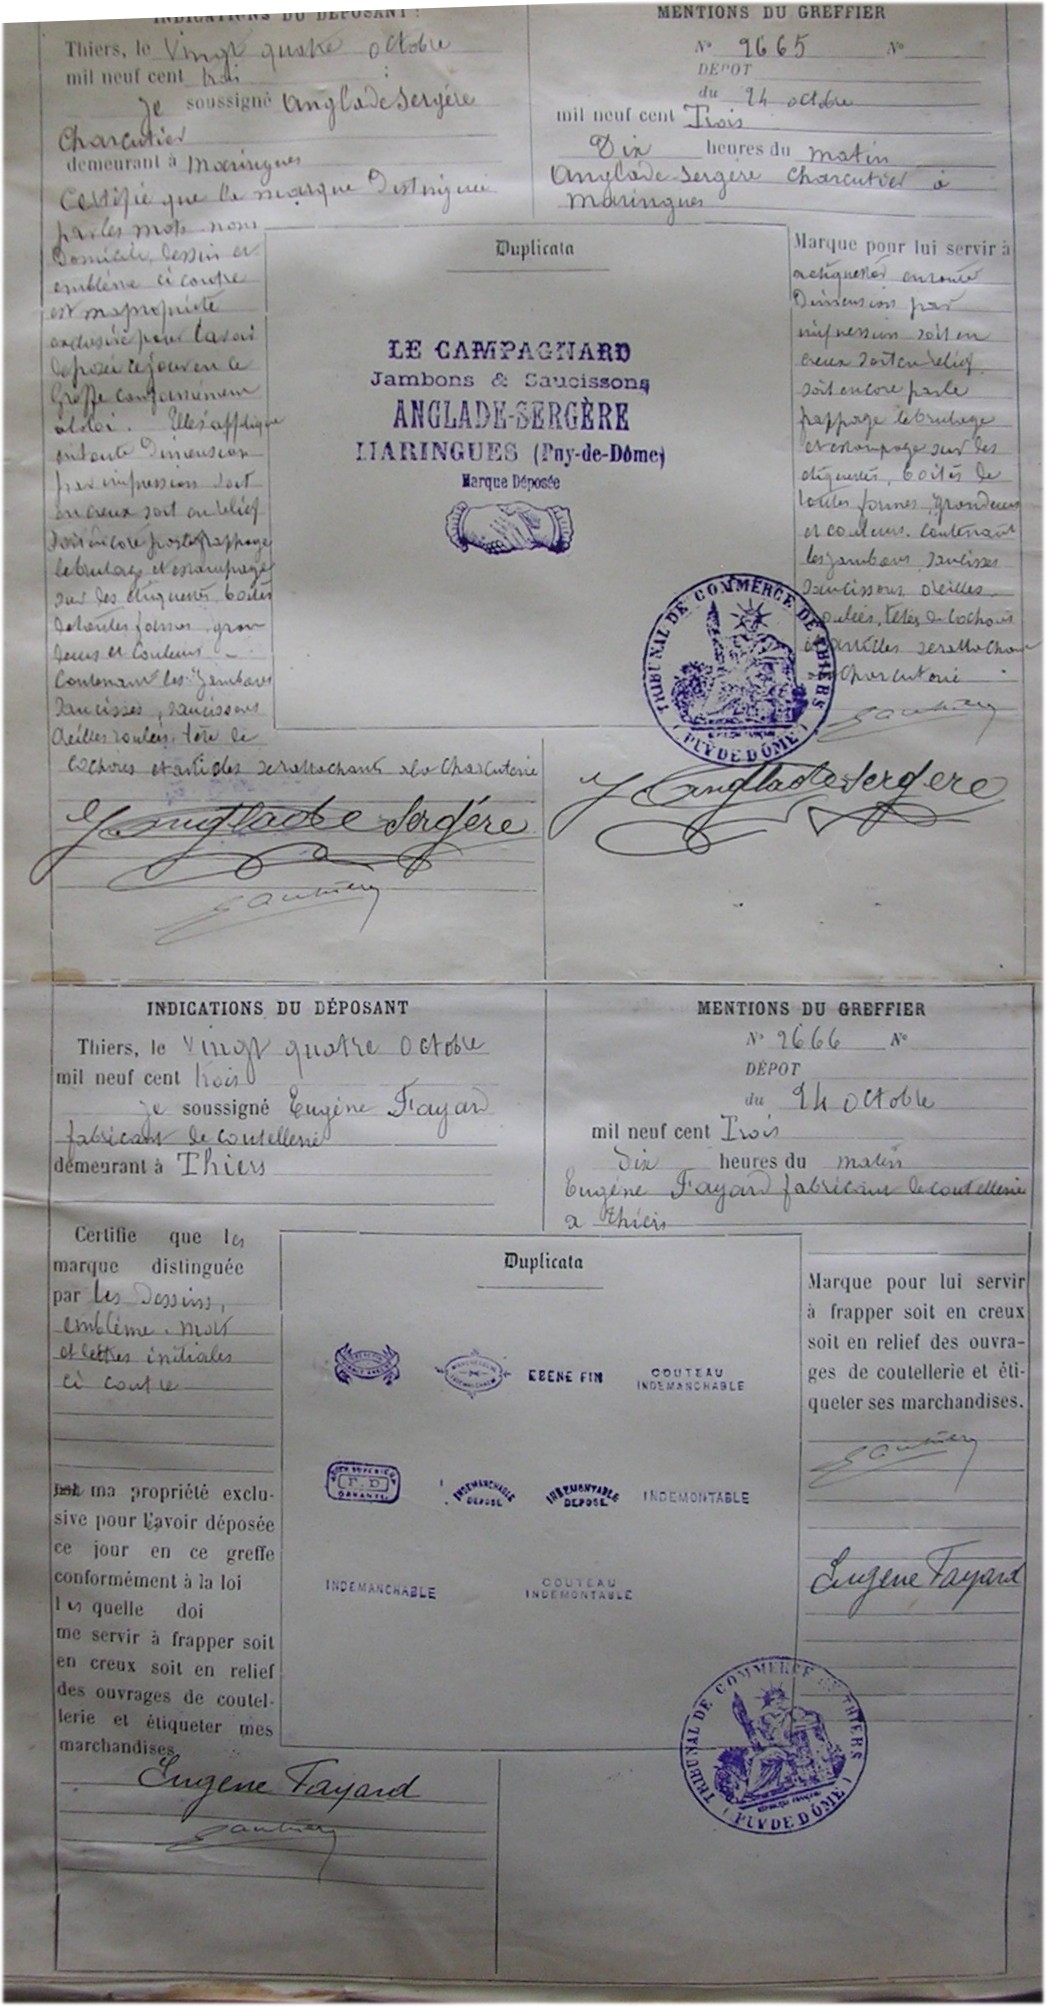 INDICATIONS DU DÉPOSANT :
Thiers, le Vingt quatre octobre
mil neuf cent trois
je soussigné Anglade Sergère
Charcutier
demeurant à Maringues
Certifie que la marque Distinguée
par les mots nom
Domicile, dessin et
emblème ci contre
est ma propriété
exclusive pour l'avoir
déposée ce jour en ce
Greffe conformément
à la loi. Elle s'applique
en toute Dimension
par impression soit
en creux soit en relief
soit encore par le frappage
le brulage et estampage
sur des étiquettes boites
de toutes formes gran
deurs et couleurs
contenant les jambons
saucisses, saucissons
oreilles roulées, tête de
cochons et articles se rattachant à la charcuterie
Anglade Sergére
Gauthier
MENTIONS DU GREFFIER
N° 2665 N°
DÉPOT
du 24 octobre
mil neuf cent Trois
Dix heures du matin
Anglade Sergère Charcutier à
Maringues
Duplicata
LE CAMPAGNARD
Jambons & Saucissons
ANGLADE-SERGÈRE
MARINGUES (Puy-de-Dôme)
Marque Déposée
Marque pour lui servir à
étiqueter en toute
Dimension par
impression soit en
creux soit en relief
soit encore par le
frappage le brulage
et estampage sur des
étiquettes, boites de
toutes formes, grandeurs
et couleurs contenant
les jambons saucisses
saucissons oreilles
roulées, têtes de cochons
et articles se rattachant
à charcuterie
Gauthier
TRIBUNAL DE COMMERCE DE THIERS
(PUY DE DÔME)
Anglade Sergere
INDICATIONS DU DÉPOSANT
Thiers, le vingt quatre octobre
mil neuf cent trois
je soussigné Eugène Fayard
fabricant de coutellerie
demeurant à Thiers
Certifie que les
marque distinguée
par les dessins,
emblème, mots
et lettres initiales
ci contre
ma propriété exclu-
sive pour l'avoir déposée
ce jour en ce greffe
conformément à la loi
les quelle doi
me servir à frapper soit
en creux soit en relief
des ouvrages de coutel-
lerie et étiqueter mes
marchandises.
Eugene Fayard
Gauthier
MENTIONS DU GREFFIER
N° 2666 N°
DÉPOT
du 24 octobre
mil neuf cent Trois
Dix heures du matin
Eugéne Fayard fabricant de coutellerie
a thiers
Duplicata
EBENE FIN
COUTEAU
INDEMANCHABLE
F.D
GARANTI
INDEMANCHABLE
DEPOSE
INDEMONTABLE
DEPOSE
INDEMONTABLE
INDEMANCHABLE
COUTEAU
INDEMONTABLE
Marque pour lui servir
à frapper soit en creux
soit en relief des ouvra-
ges de coutellerie et éti-
queter ses marchandises.
Gauthier
Eugene Fayard
TRIBUNAL DE COMMERCE DE THIERS
RÉPUBLIQUE FRANÇAISE
(PUY DE DÔME)